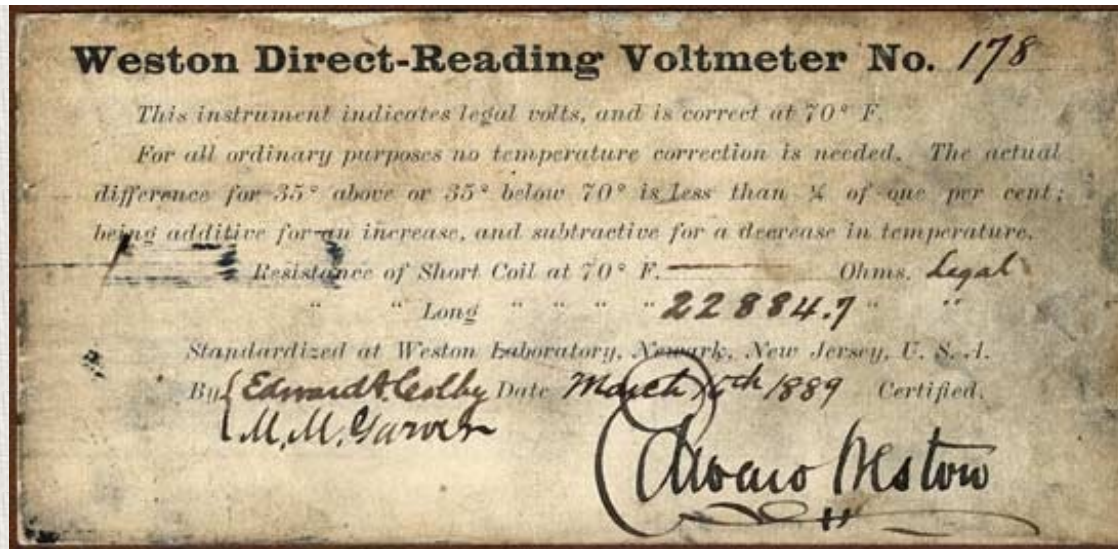 Weston Direct-Reading Voltmeter No. 178
This instrument indicates legal volts, and is correct at 70° F.
For all ordinary purposes no temperature correction is needed. The actual
difference for 35° above or 35° below 70° is less than ¼ of one per cent;
being additive for an increase, and subtractive for a decrease in temperature.
Resistance of Short Coil at 70° F. —— Ohms. Legal
" " Long " " " " 22884.7 " "
Standardized at Weston Laboratory, Newark, New Jersey, U. S. A.
By Edward A. Colby Date March 16th 1889 Certified.
M. M. Garver
Edward Weston